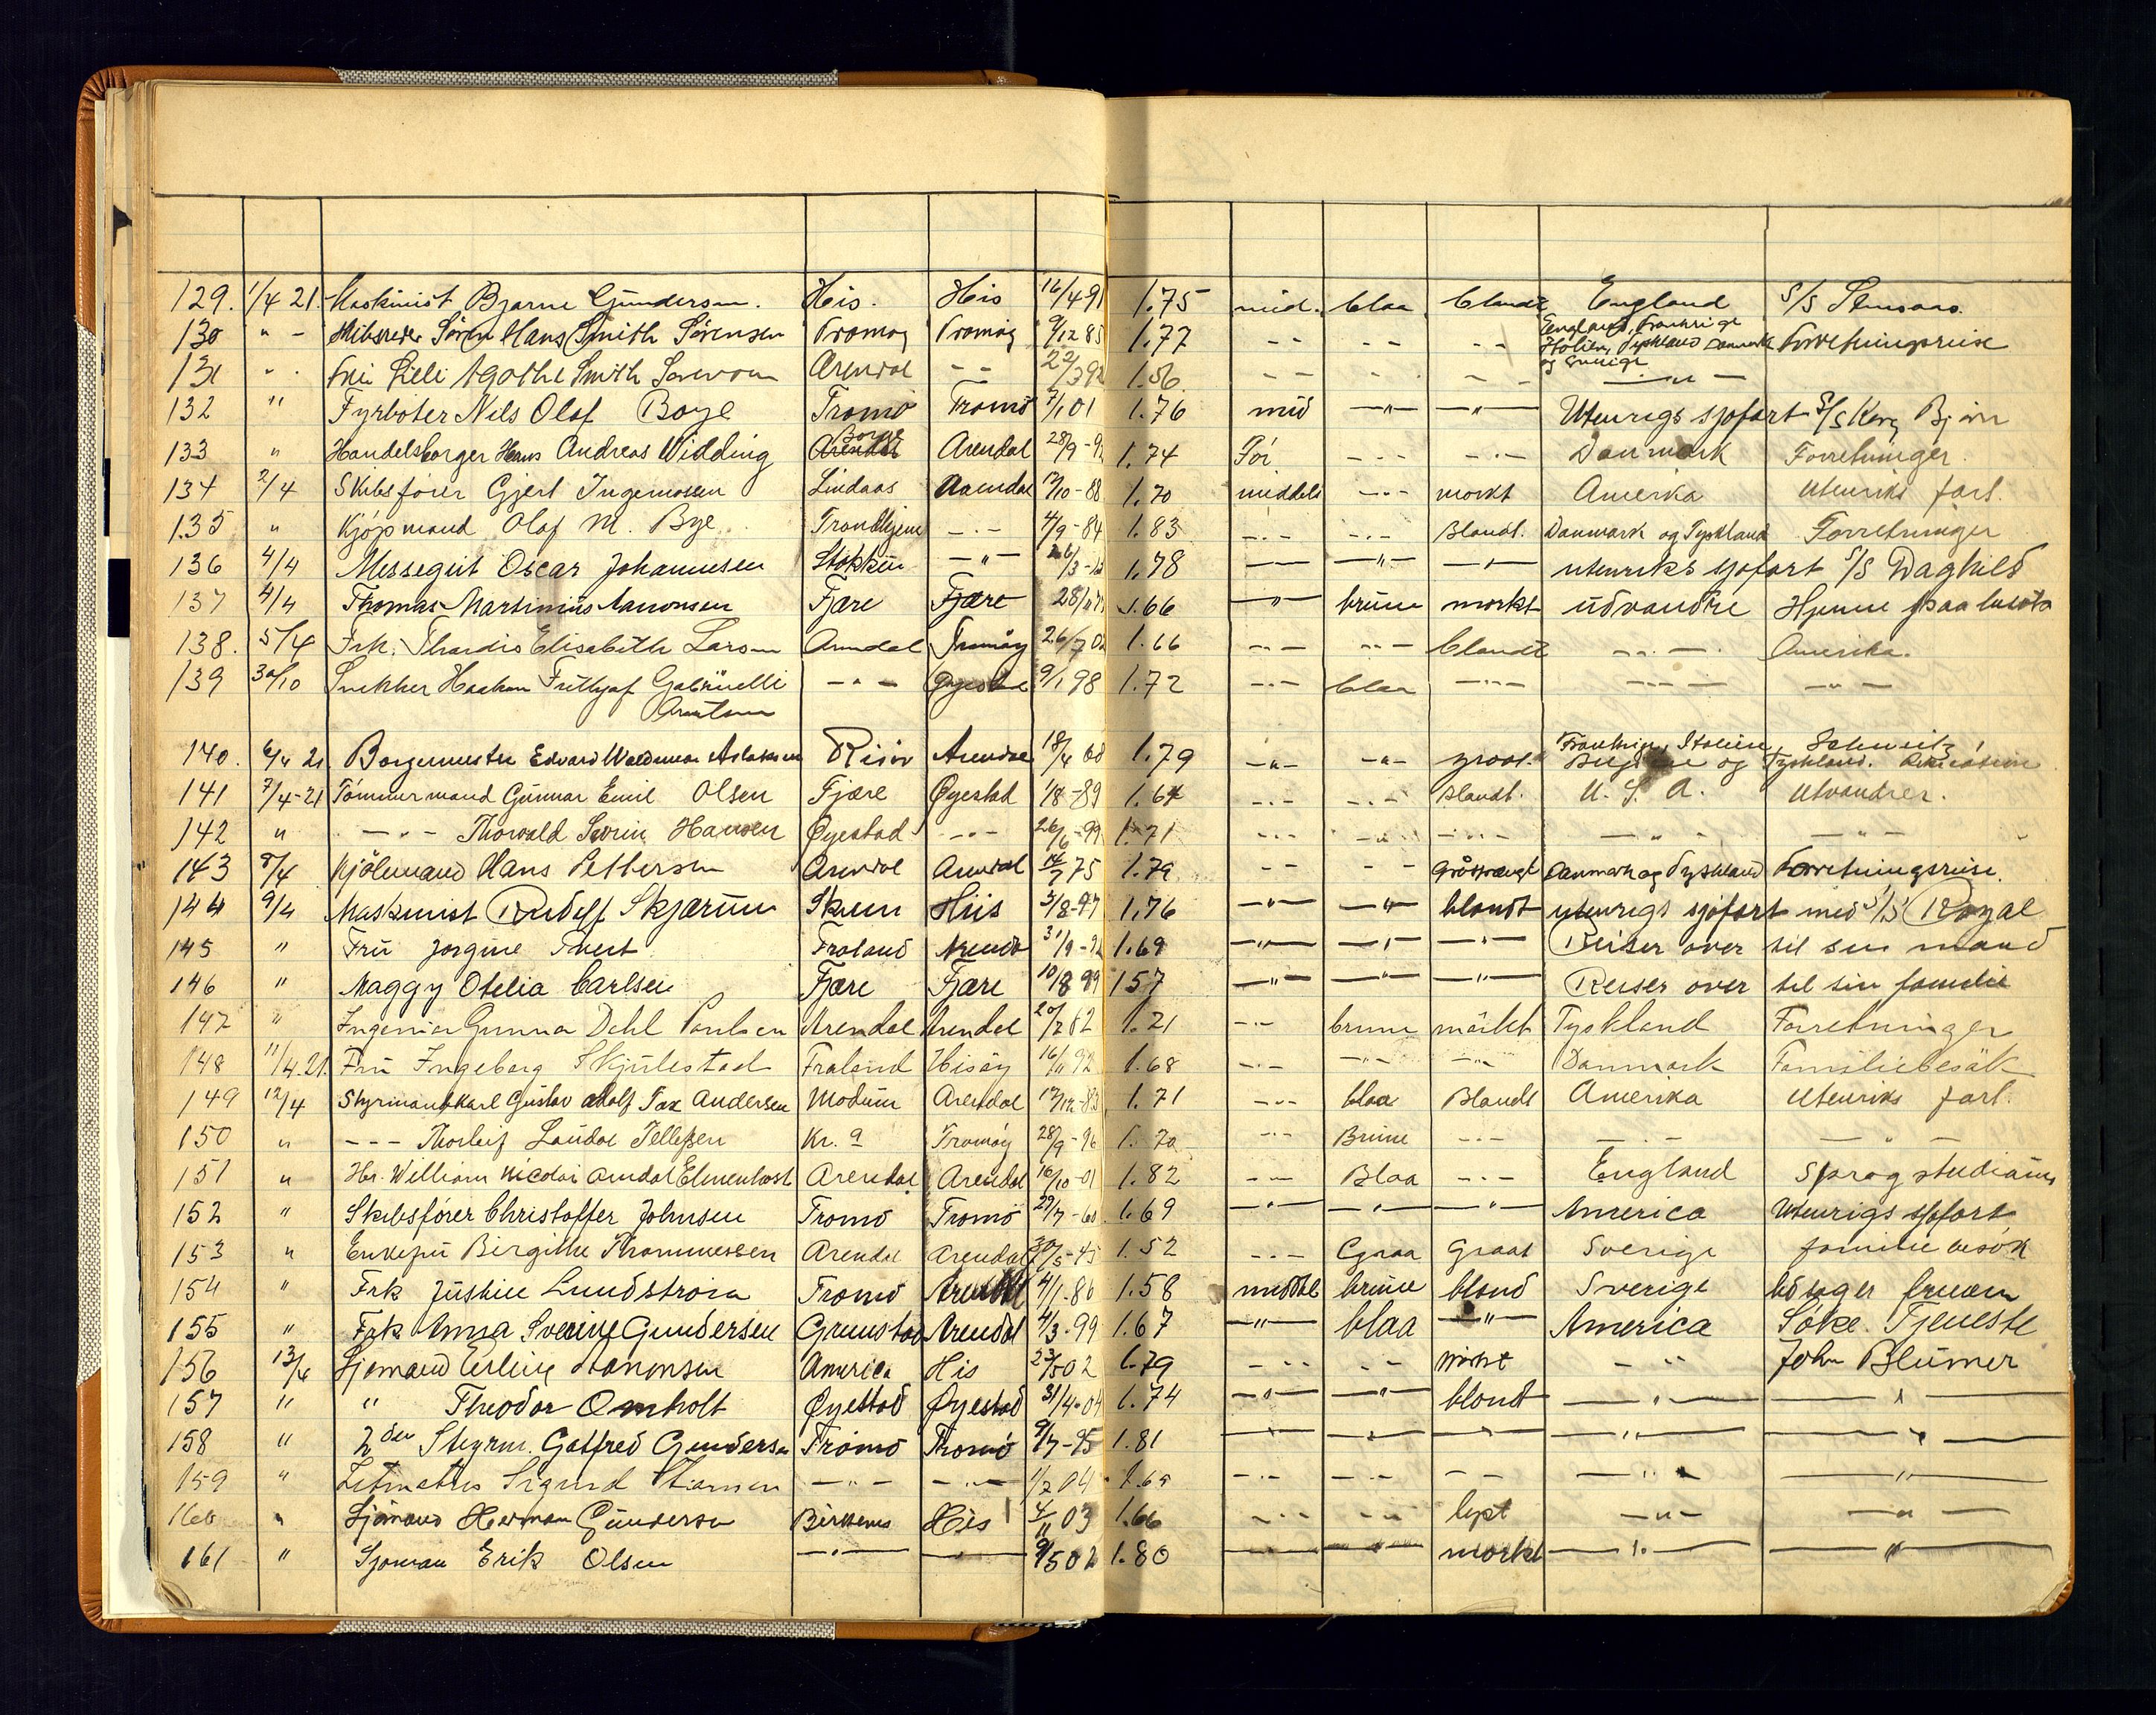 129. 1/4 21. Maskinist Bjarne Gundersen. His. His 16/4 91 1.75 mid. blaa blondt England S/S
130 " - Søren Hans Smith Sørensen Tromøy Tromøy 9/12 85 1.77 - - - - - - England, Frankrige Italien, Tyskland Danmark og Sverige Forretningsreise
131 " . Agathe Smith Arendal - - 22/3 92 1.56 - - - - - - — " —
132 " Fyrbøter Nils Olaf Boye Tromø Tromø 7/1 01 1.76 mid —"— —"— Utenrigs sjøfart S/S Kong Bjørn
133 " Handelsborger Hans Andreas Widding Arendal Arendal 28/9 - 1.74 Før - - - - . - Danmark Forretninger.
134 2/4 Skibsfører Gjert Ingemosen Lindaas Arendal /10 - 88 1.70 middels - . - mørkt Amerika Utenriks fart.
135 " Kjøpmand Olaf M. Bye Trondhjem - . - 4/9 - 84 1.83 - . - - . - Blondt. Danmark og Tyskland Forretninger
136 4/4 Messegut Oscar Johannesen Stokken —"— 26/3 - 1.78 —— —"— —"— utenriks sjøfart S/S Daghild
137 4/4 Thomas Martinius Aanonsen Fjære Fjære 28/ 1.66 —"— brune mørkt udvandre Hjemme paa besøk
138. 5/4 Frk. Thordis Elisabeth Larsen Arendal Tromøy 26/7 02 1.66 - - - - blondt - - . - . Amerika.
139 30/10 Snekker Haakon Fritjof Gabrielli Arntsen - " - Øyestad 9/1 98 1.72 - . - blaa - . - - - - - " -
140. 6/4 21 Borgermester Edvard Waldemar Aslaksen Risør Arendal 18/4 68 1.79 - " - - " - graat. Frankrig, Italien, Schweitz, og Tyskland.
141 7/4 - 21 Tømmermand Gunnar Emil Olsen Fjære Øyestad 1/8 - 89 1.64 - . - - . - Blondt. U. S. A. Utvandrer.
142 " - . - Thorvald Severin Hansen Øyestad - . - 26/6 - 99 1.71 - . - - . - - . - — " — — " —
143 8/4 Kjølmand Hans Pettersen Arendal Arendal 14/7 75 1.79 - - - - Danmark og Tyskland Forretningsreise.
144 9/4 Maskinist Rudolf Skjærum Skien Hiis 3/8 - 97 1.76 —"— —"— blondt utenrigs sjøfart med S/S Royal
145 " Fru Jørgine Froland Arendal 31/9 - 1.69 —"— —"— —"— Reiser over til sin mand
146 " Maggy Otelia Carlsen Fjære Fjære 10/8 99 157 —"— —"— —"— Reiser over til sin familie
147 " Ingeniør Gunnar Dehl Poulsen Arendal Arendal 20/7 82 1.71 - . - brune mørkt Tyskland Forretninger
148 11/4.21. Fru Ingeborg Skjulestad Froland Hisøy 16/11 92 1.68 - . - - . - - . - Danmark Familiebesøk
149 12/4 Styrmand Karl Gustav Adolf Fax Andersen Modum Arendal /12 - 83 1.71 - . - blaa Blondt Amerika Utenriks fart.
150 " - - - Thorleif Laudal Tellefsen Kr. a Tromøy 28/9 - 96 1.70 - . - Brune - . - — . — — " —
151 " Hr. William Nicolai Arndal Arendal Arendal 16/10 - 01 1.82 - - Blaa - . - England Sprog studium
152 " Skibsfører Christoffer Johnsen Tromø Tromø 29/7 - 1.69 —"— —"— —"— America Utenrigs sjøfart
153 " Enkefru Birgitte Thommessen Arendal Arendal 30/5 - 45 1.52 - . - Graa Graat Sverige familie besøk
154 " Frk Justine Lundstrøm Tromø Arendal 4/1.86 1.58 middel brune blond Sverige
155 " Frk Anna Sverine Gundersen Grimstad Arendal 4/3.99 1.67 —"— blaa —"— America Søke. Tjeneste
156 13/4 Sjømand Erling Aanonsen America His 23/5 02 1.79 - . . - - mørkt - " John Blumer
157 " " Theodor Omholt Øyestad Øyestad 31/4.04 1.74 —"— —"— blond —"— —"—
158 " 2den Styrm. Gotfred Gundersen Tromø Tromø 9/7 - 95 1.81 —"— —"— —"— —"— —"—
159 " Letmatros Sigurd - . - - . - 1/2 04 1.69 - . - - . - - - —"— —"—
160 " Sjømand Herman Gundersen Birkenes His 4/11 03 1.66 - . - - . - lyst —"— —"—
161 " Sjøman Erik Olsen —"— —"— 9/5 02 1.80 —— —— mørkt —"— —"—